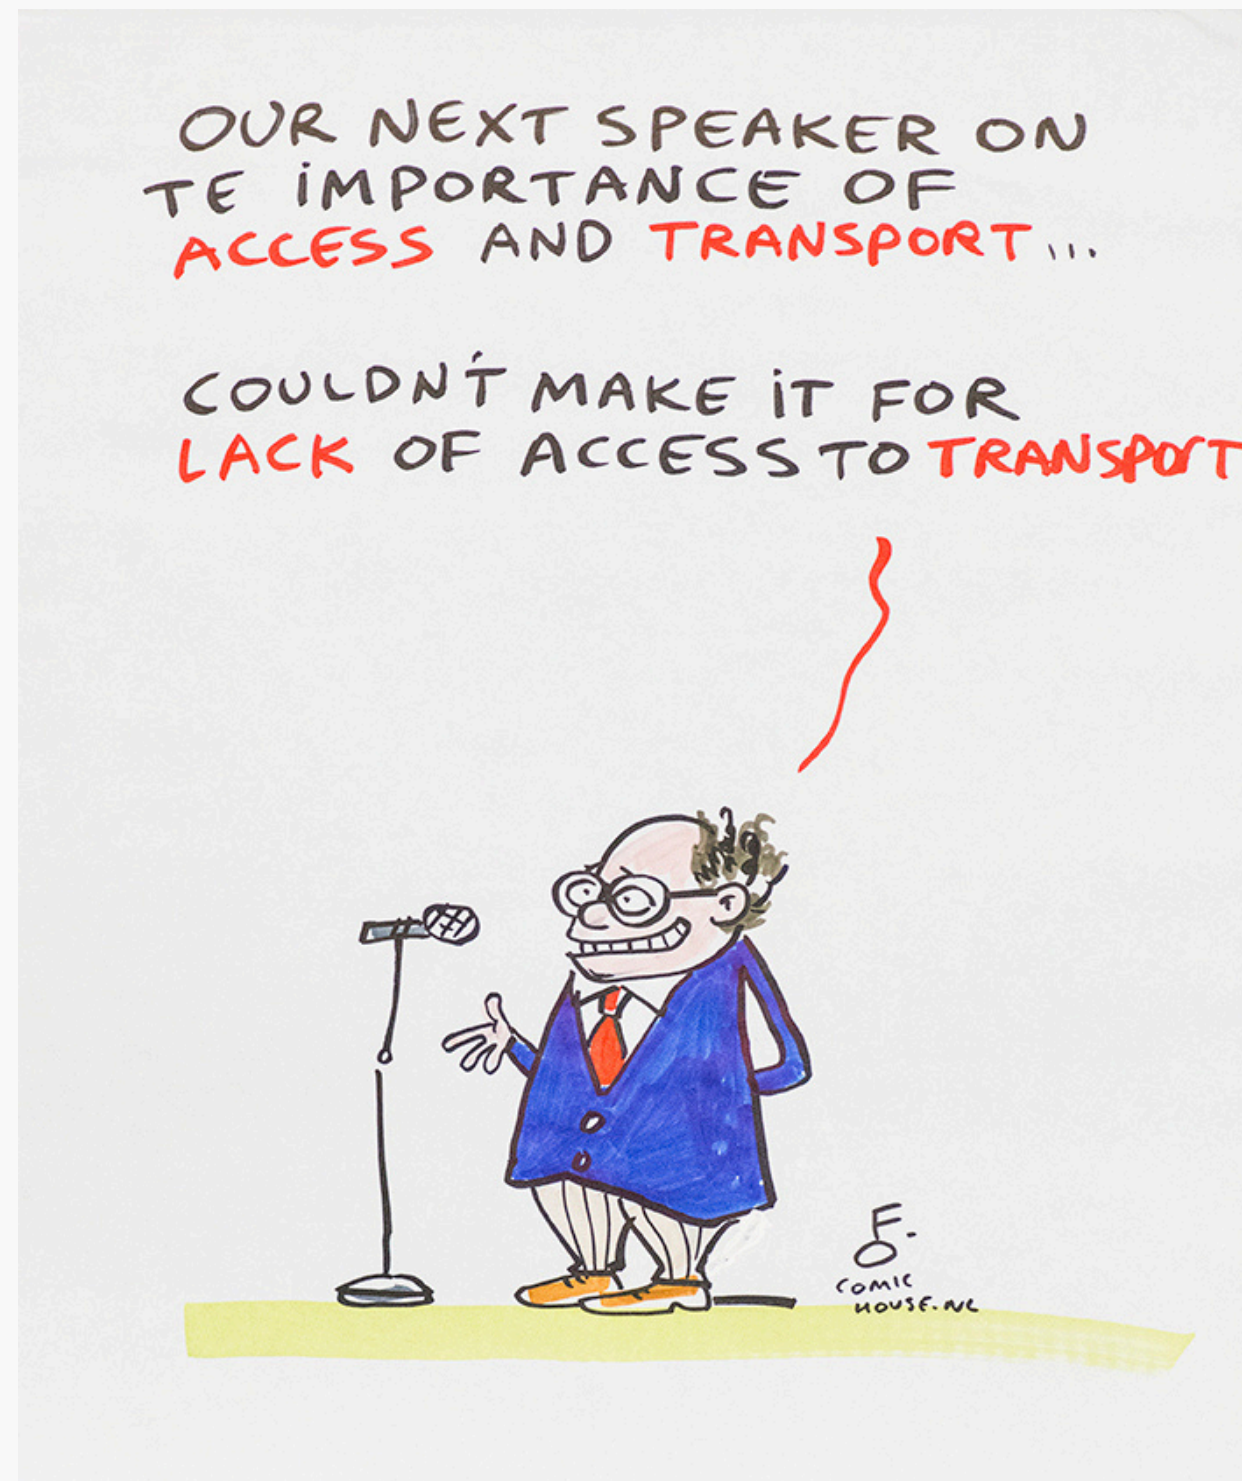 OUR NEXT SPEAKER ON
TE iMPORTANCE OF
ACCESS AND TRANSPORT...
COULDN'T MAKE iT FOR
LACK OF ACCESS TO TRANSPORT
F.
COMIC
HOUSE.NL